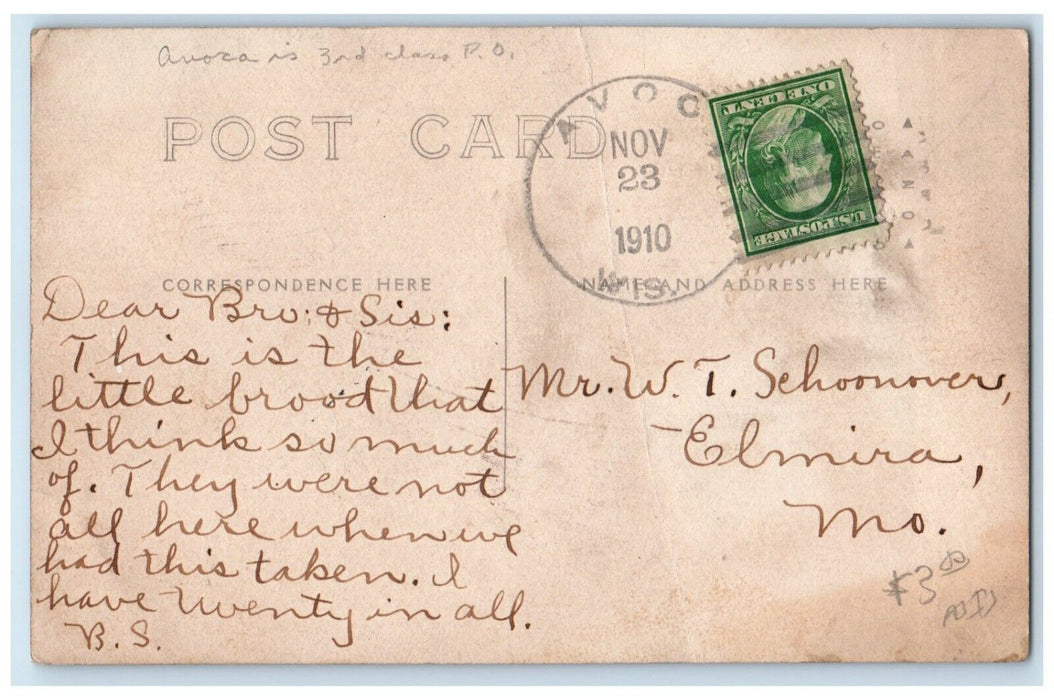 Avoca is 3rd class P.O.
POST CARD
AVOC
NOV
23
1910
WIS.
ONE CENT
U.S. POSTAGE
CORRESPONDENCE HERE
NAME AND ADDRESS HERE
Dear Bro. & Sis:
This is the
little brood that
I think so much
of. They were not
all here when we
had this taken. I
have twenty in all.
B.S.
Mr. W. T. Schoonover,
Elmira,
Mo.
$3